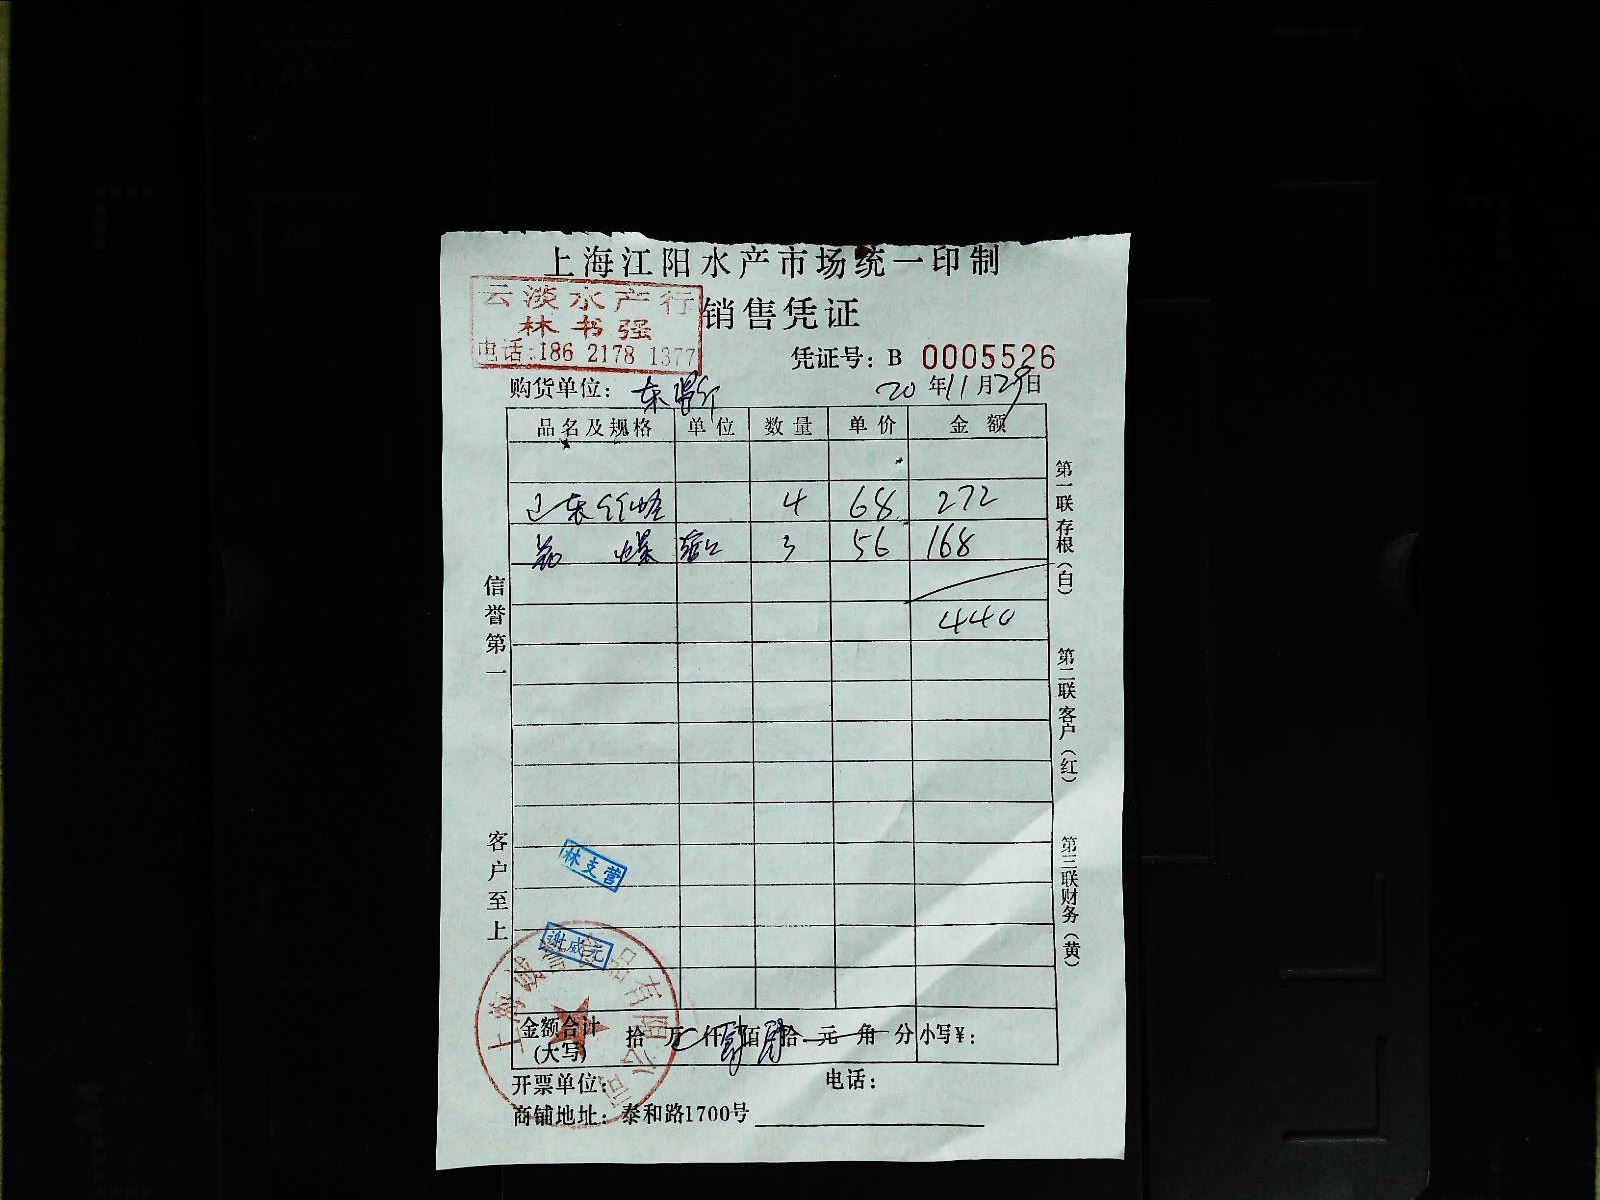 上海江阳水产市场统一印制
云淡水产行
林书强
电话:186 2178 1377
销售凭证
凭证号: B 0005526
购货单位:
20年11月29日
品名及规格 单位 数量 单价 金额
4 68 272
3 56 168
440
信誉第一
客户至上
第一联存根(白)
第二联客户(红)
第三联财务(黄)
林支营
谢威元
金额合计(大写) 拾万仟肆佰肆拾元角分 小写¥:
开票单位: 电话:
商铺地址: 泰和路1700号